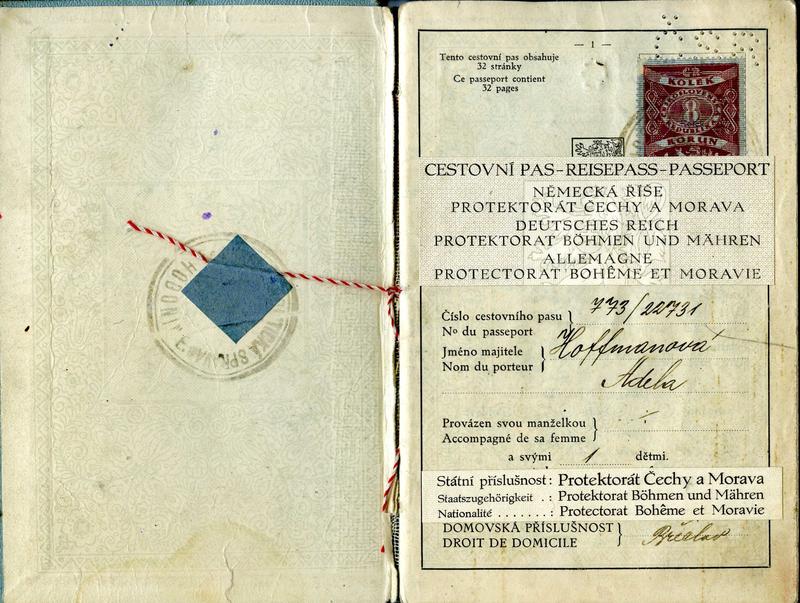 — 1 —
Tento cestovní pas obsahuje
32 stránky
Ce passeport contient
32 pages
KOLEK
8
KORUN
CESTOVNÍ PAS-REISEPASS-PASSEPORT
NĚMECKÁ ŘÍŠE
PROTEKTORÁT ČECHY A MORAVA
DEUTSCHES REICH
PROTEKTORAT BÖHMEN UND MÄHREN
ALLEMAGNE
PROTECTORAT BOHÊME ET MORAVIE
Číslo cestovního pasu } 773/22731
No du passeport
Jméno majitele } Hoffmanová
Nom du porteur
Adela
Provázen svou manželkou } ÷
Accompagné de sa femme
a svými 1 dětmi.
Státní příslušnost: Protektorát Čechy a Morava
Staatszugehörigkeit .: Protektorat Böhmen und Mähren
Nationalité . . . . . . . : Protectorat Bohême et Moravie
DOMOVSKÁ PŘÍSLUŠNOST } Břeclav
DROIT DE DOMICILE